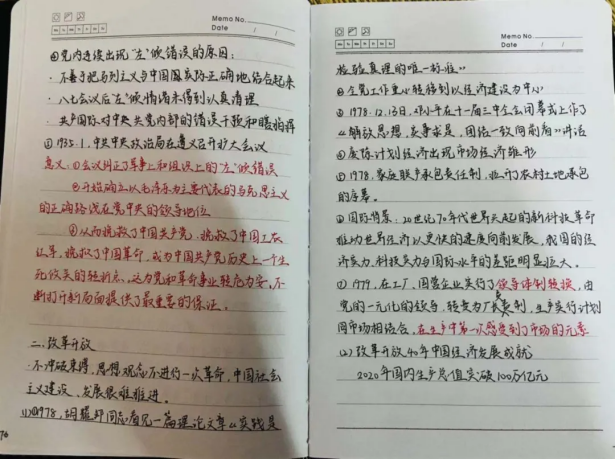 Memo No.
Mo Tu We Th Fr Sa Su
Date / /
④党内连续出现"左"倾错误的原因：
·不善于把马列主义与中国国实际正确地结合起来
·八七会议后"左"倾情绪未得到认真清理
·共产国际对中共党内部的错误干预和瞎指挥
①1935.1,中共中央政治局在遵义召开扩大会议
意义：①会议纠正了军事上和组织上的"左"倾错误
②开始确立以毛泽东为主要代表的马克思主义
的正确路线在党中央的领导地位
③从而挽救了中国共产党、挽救了中国工农
红军、挽救了中国革命，成为中国共产党历史上一个生
死攸关的转折点，这为党和革命事业转危为安、不
断打开新局面提供了最重要的保证。
二、改革开放
·不冲破束缚，思想观念不进行一次革命，中国社会
主义建设、发展很难推进。
(1)①1978，胡耀邦同志看见一篇理论文章《实践是
76
Memo No.
Mo Tu We Th Fr Sa Su
Date / /
检验真理的唯一标准》
②全党工作重心转移到以经济建设为中心
③1978.12.13,邓小平在十一届三中全会闭幕式上作了
《解放思想，实事求是，团结一致向前看》讲话
④废除计划经济出现市场经济雏形
⑤1978,家庭联产承包责任制，拉开了农村土地承包
的序幕。
⑥国际背景：20世纪70年代世界兴起的新科技革命
推动世界经济以更快的速度向前发展，我国的经
济实力、科技实力与国际水平的差距明显拉大。
⑦1979,在工厂、国营企业实行了领导体制转换，由
党的一元化的领导，转变为厂长责制，生产实行计划
同市场相结合，在生产中第一次感受到了市场的元素
(2)改革开放40年中国经济发展成就
2020年国内生产总值突破100万亿元